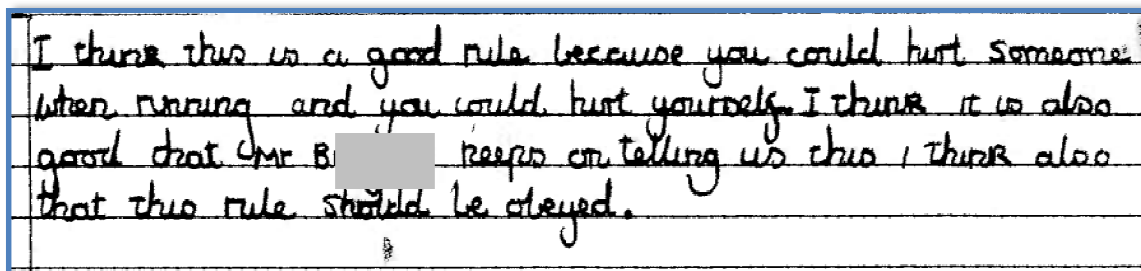 I think this is a good rule because you could hurt someone
when running and you could hurt yourself. I think it is also
good that Mr B keeps on telling us this I think also
that this rule should be obeyed.